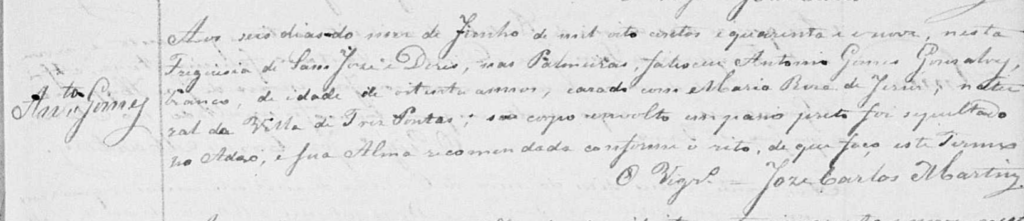 Aos seis dias do mez de Junho de mil oito centos e quarenta e nove, nesta
Freguesia de Sam Joze e Dores, nas Palmeiras, faleceu Antonio Gomes Gonsalves,
Anto Gomes
branco, de idade de oitenta annos, cazado com Maria Roza de Jesus, natu
ral da Villa de Tres Pontas; seu corpo envolto em pano preto foi sepultado
no Adro, e sua Alma recomendada conforme o rito, de que faço este Termo
O Vigro. Joze Carlos Martins